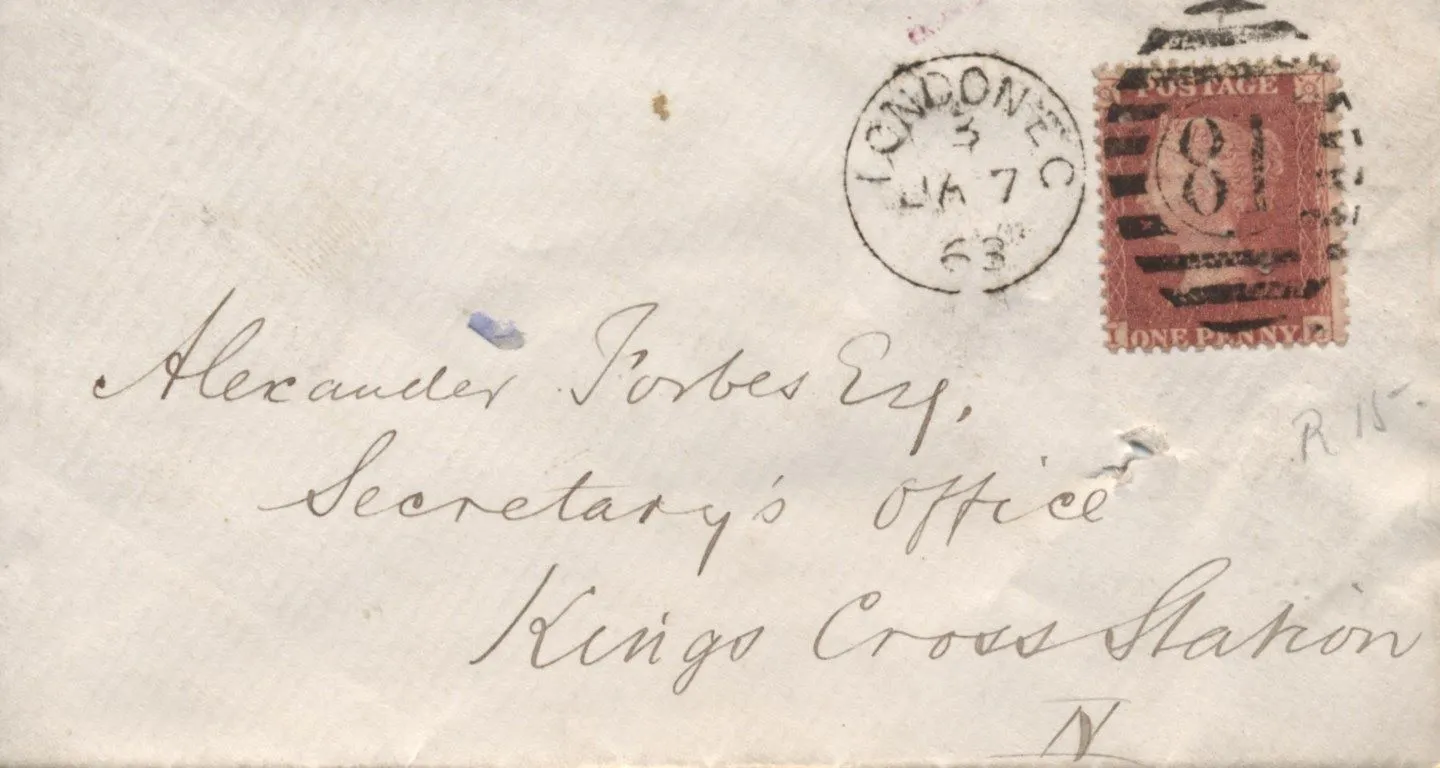 LONDON·EC
3
JA 7
63
POSTAGE
81
ONE PENNY
Alexander Forbes Esq.
Secretary's Office
Kings Cross Station
N
R 15-